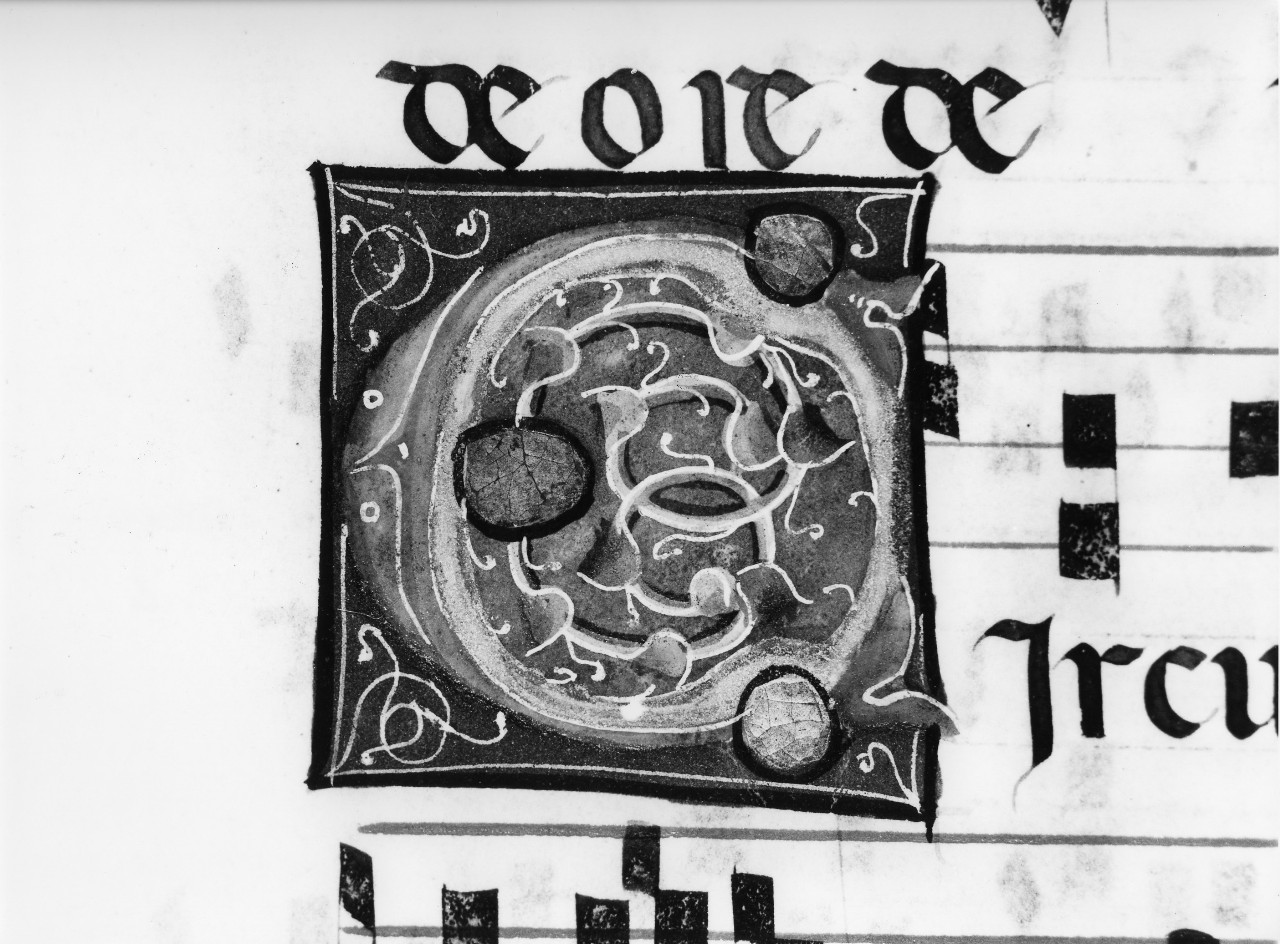 de ore de
C Ircu